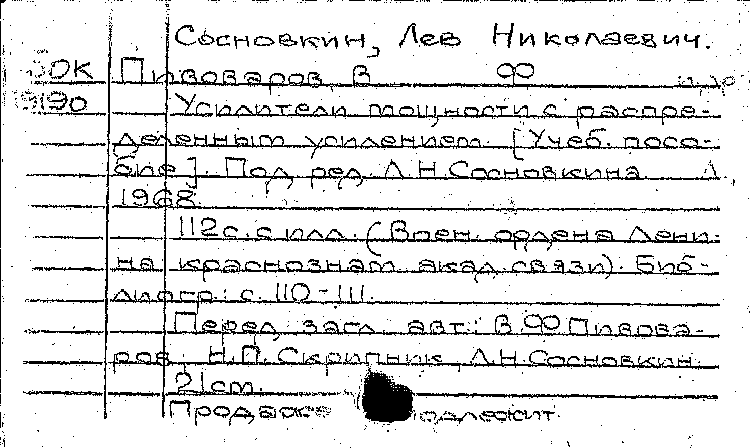 Сосновкин, Лев Николаевич.
Пивоваров, В Ф и др
Усилители мощности с распре-
деленным усилением. [Учеб. посо-
бие]. Под ред. Л.Н.Сосновкина. Л.,
1968.
112с. с илл. (Воен. ордена Лени-
на краснознам акад связи). Биб-
лиогр: с. 110-111.
Перед загл. авт.: В.Ф Пивова-
ров, Н.П. Скрипник, Л.Н.Сосновкин
21cm.
Продаже